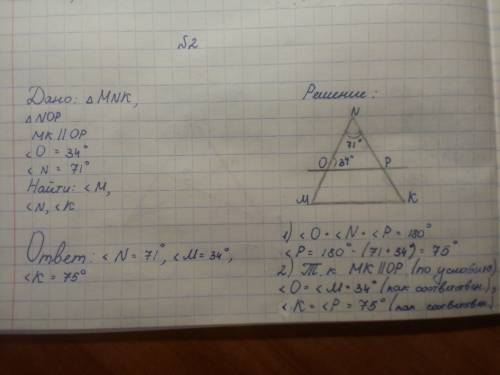 №2
Дано: △MNK,
△NOP
MK||OP
∠O = 34°
∠N = 71°
Найти: ∠M,
∠N, ∠K
Ответ: ∠N = 71°, ∠M = 34°,
∠K = 75°
Решение:
N
71°
O 34° P
M K
1) ∠O + ∠N + ∠P = 180°
∠P = 180° - (71 + 34°) = 75°
2) Т.к. MK||OP (по условию),
∠O = ∠M = 34° (как соответствен.),
∠K = ∠P = 75° (как соответствен.)